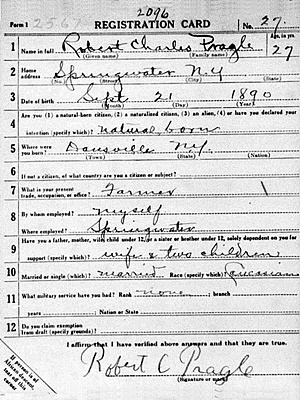 2096
Form 1 2567 REGISTRATION CARD No. 27
1 Name in full Robert Charles Pragle Age, in yrs. 27
(Given name) (Family name)
2 Home address Springwater N.Y
(No.) (Street) (City) (State)
3 Date of birth Sept 21 1890
(Month) (Day) (Year)
4 Are you (1) a natural-born citizen, (2) a naturalized citizen, (3) an alien, (4) or have you declared your
intention (specify which)? natural born
5 Where were you born? Dansville NY
(Town) (State) (Nation)
6 If not a citizen, of what country are you a citizen or subject?
7 What is your present trade, occupation, or office? Farmer
8 By whom employed? myself
Where employed? Springwater
9 Have you a father, mother, wife, child under 12, or a sister or brother under 12, solely dependent on you for
support (specify which)? wife & two children
10 Married or single (which)? married Race (specify which)? Caucasian
11 What military service have you had? Rank none ; branch
years ; Nation or State
12 Do you claim exemption from draft (specify grounds)?
I affirm that I have verified above answers and that they are true.
Robert C Pragle
(Signature or mark)
If person is of African descent, tear off this corner